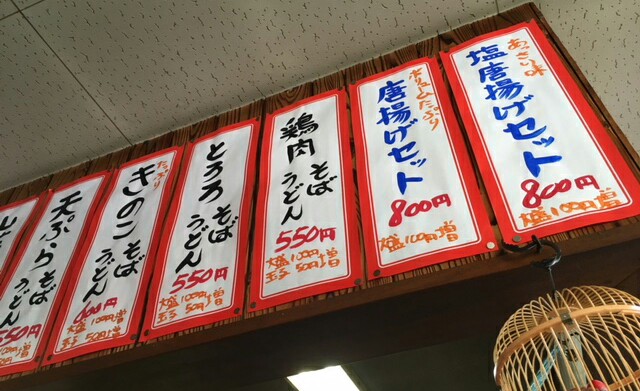 あっさり味
塩唐揚げセット
800円
大盛100円増
ボリュームたっぷり
唐揚げセット
800円
大盛100円増
鶏肉
そば
うどん
550円
大盛100円増
玉子50円増
とろろ
そば
うどん
550円
大盛100円増
玉子50円増
たっぷり
きのこ
そば
うどん
00円
大盛100円増
玉子50円増
天ぷら
そば
うどん
550円
大盛100円増
玉子50円増